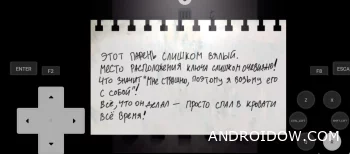 ЭТОТ ПАРЕНЬ СЛИШКОМ ВЯЛЫЙ.
МЕСТО РАСПОЛОЖЕНИЯ КЛЮЧА СЛИШКОМ ОЧЕВИДНО!
ЧТО ЗНАЧИТ "МНЕ СТРАШНО, ПОЭТОМУ Я ВОЗЬМУ ЕГО
С СОБОЙ"!
ВСЁ, ЧТО ОН ДЕЛАЛ — ПРОСТО СПАЛ В КРОВАТИ
ВСЁ ВРЕМЯ!
ENTER
F2
F8
ESCA
Z
X
ANDROIDOW.COM